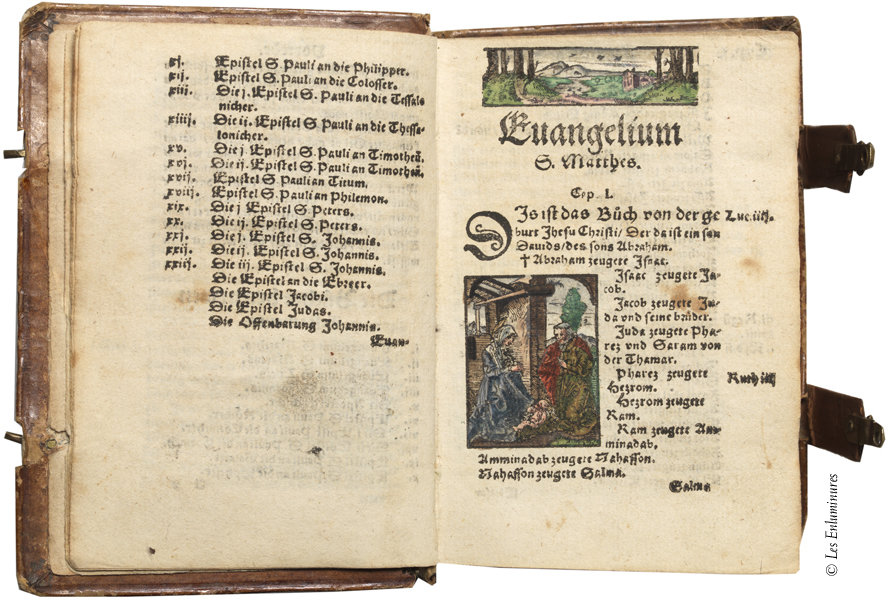 xj. Epistel S. Pauli an die Philipper.
xij. Epistel S. Pauli an die Colosser.
xiij. Die j. Epistel S. Pauli an die Tessalo
nicher.
xiiij. Die ii. Epistel S. Pauli an die Thessa-
lonicher.
xv. Die j. Epistel S. Pauli an Timotheū.
xvj. Die ij. Epistel S. Pauli an Timotheū.
xvij. Epistel S. Pauli an Titum.
xviij. Epistel S. Pauli an Philemon.
xix. Die j Epistel S. Peters.
xx. Die ij. Epistel S. Peters.
xxj. Die j. Epistel S. Johannis.
xxij. Die ij. Epistel S. Johannis.
xxiij. Die iij. Epistel S. Johannis.
Die Epistel an die Ebreer.
Die Epistel Jacobi.
Die Epistel Judas.
Die Offenbarung Johannis.
Euan-
Euangelium
S. Matthes.
Cap. I.
DJs ist das Bůch von der ge
burt Jhesu Christi/ Der da ist ein son
Dauids/des sons Abraham.
† Abraham zeugete Isaac.
Isaac zeugete Ja-
cob.
Jacob zeugete Ju-
da vnd seine brüder.
Juda zeugete Pha-
rez vnd Saram von
der Thamar.
Pharez zeugete
Hezrom.
Hezrom zeugete
Ram.
Ram zeugete Am-
minadab.
Amminadab zeugete Nahasson.
Nahasson zeugete Salma.
Salma
Luc. iij.
Ruth iiij
© Les Enluminures